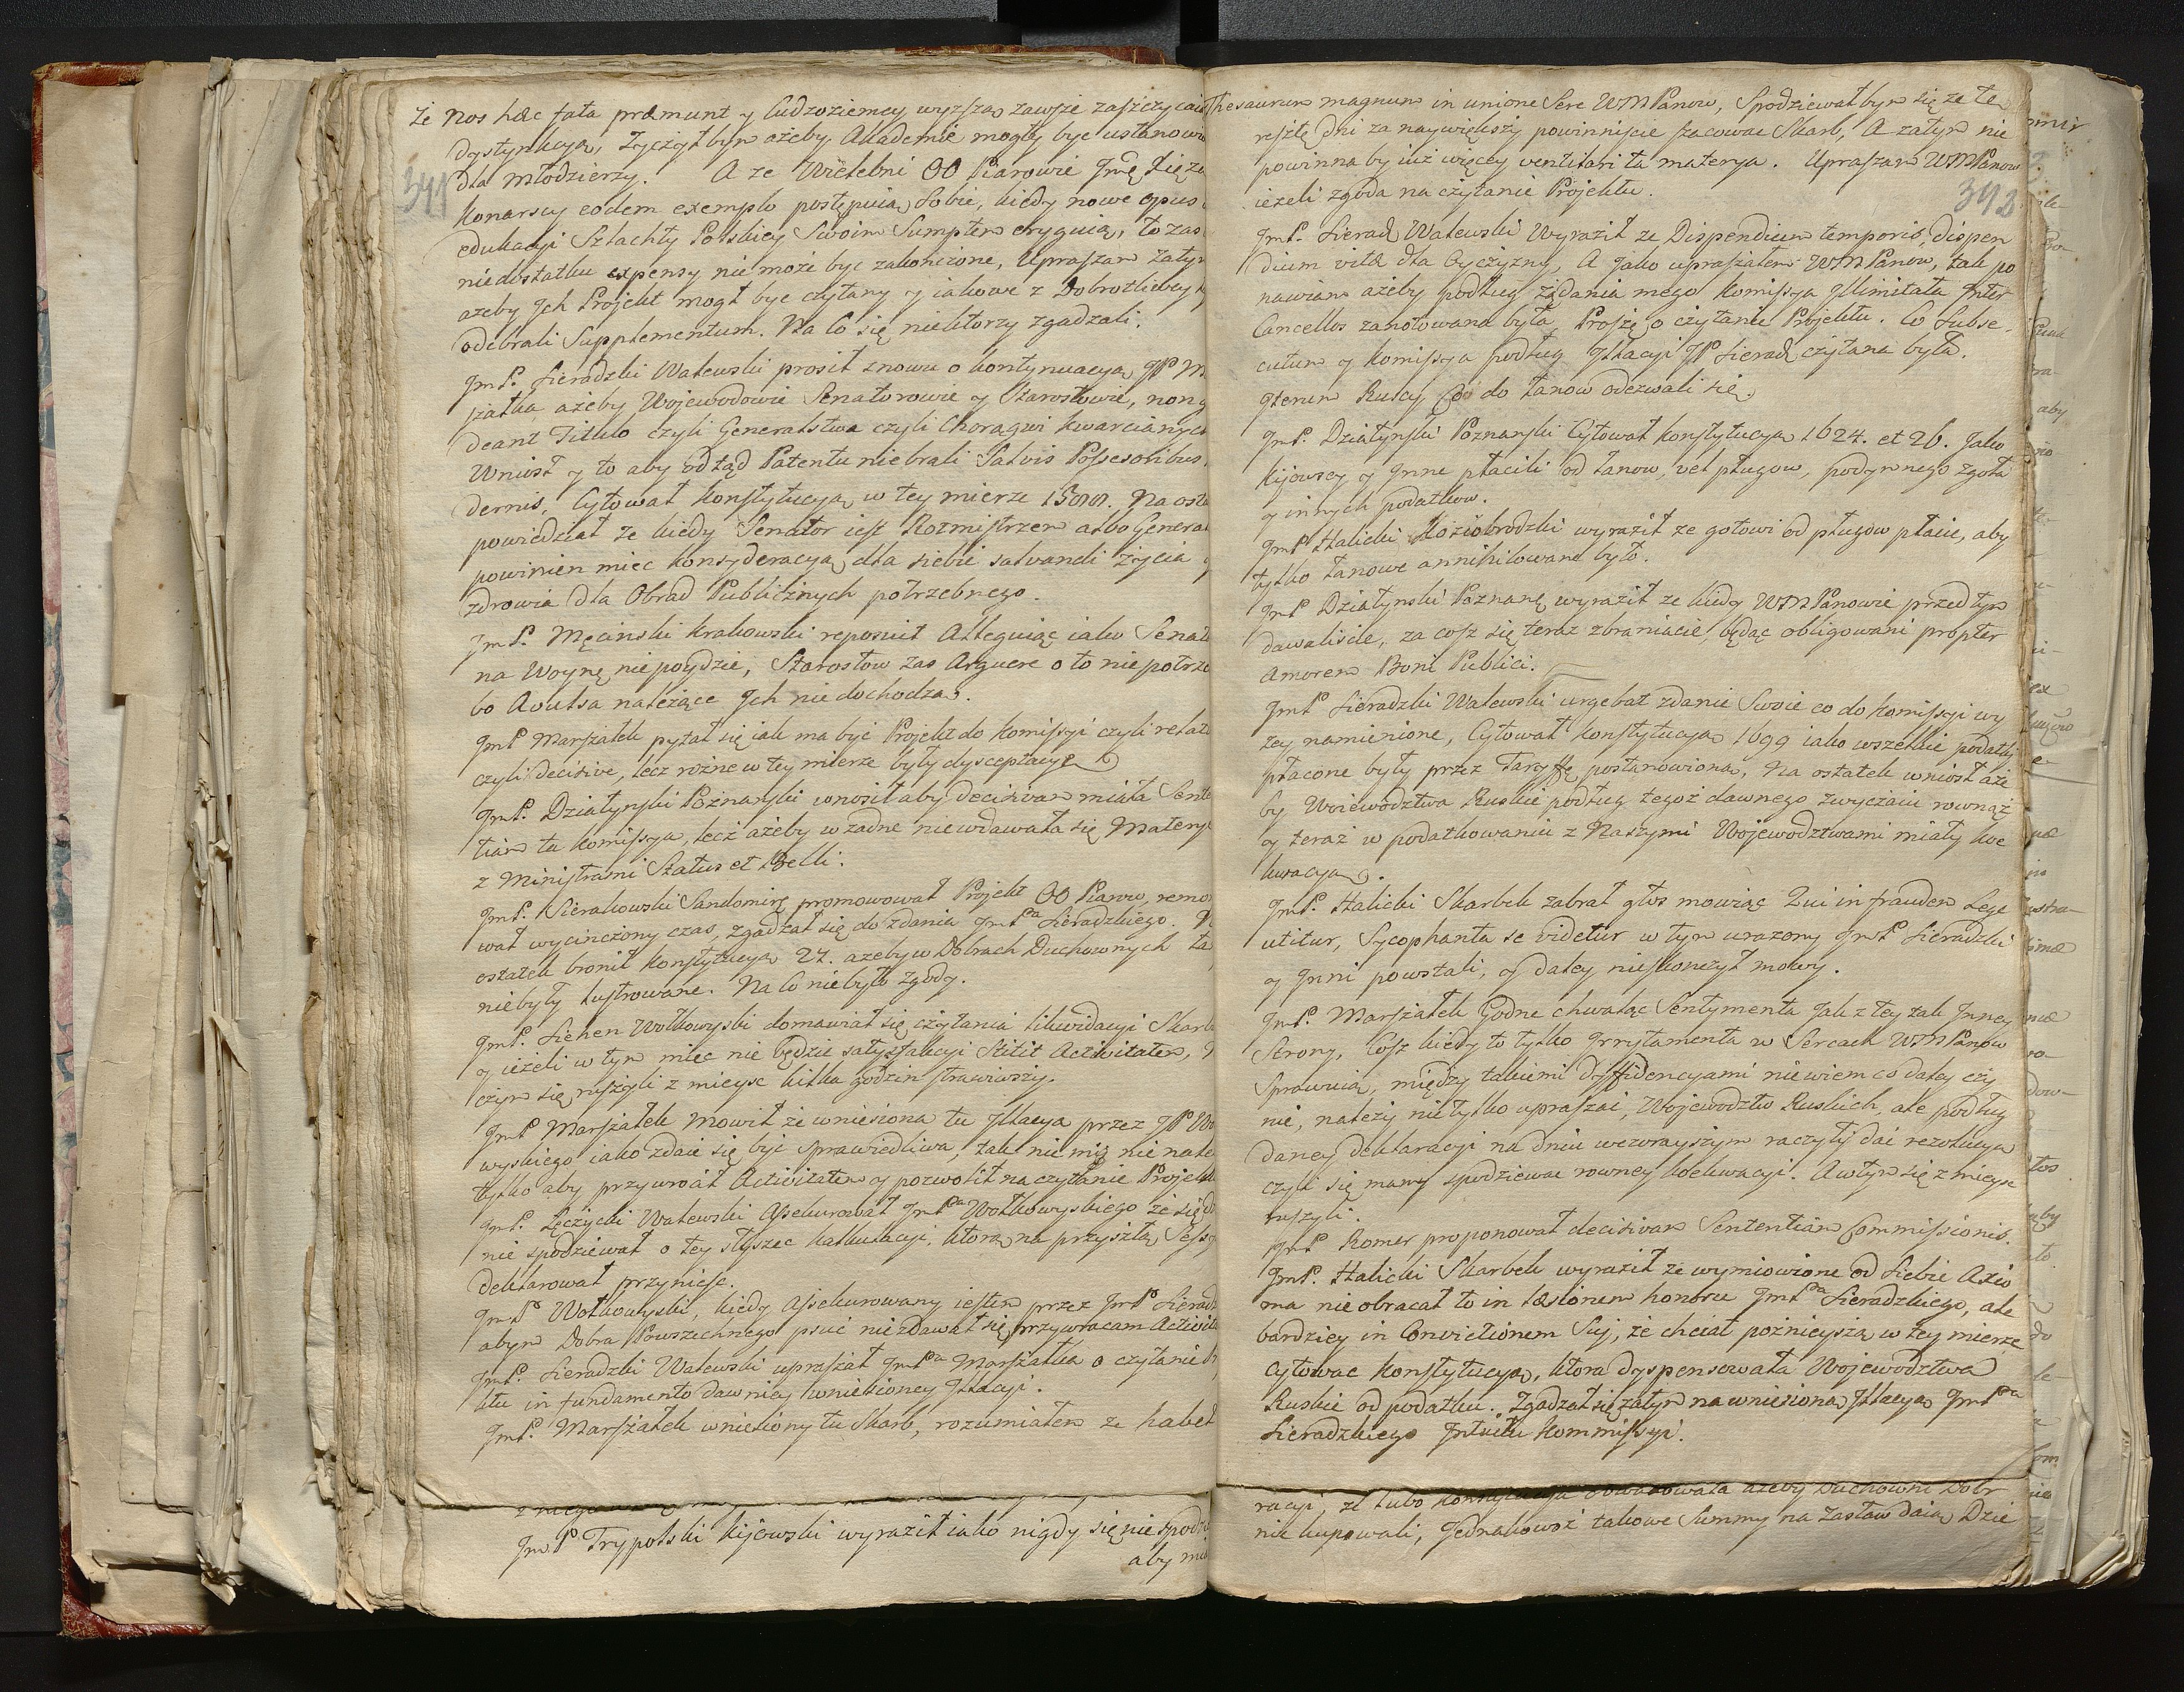 że Nos hæc fata præmunt y Cudzoziemcy wyższą zawsze zaszczycaią
dystynkcyą, Zyczył bym ażeby Akademie mogły byc ustanowi
dla Młodzierzy. A ze Wielebni OO Piarowie Jmę Xięża
341
Konarscy eodem exemplo postępuią Sobie, kiedy nowe opus
edukacyi Szlachty Polskiey Swoim Sumptem eryguią, to zas
niedostatku expensy nie może byc zakonczone, Upraszam Zatym
azeby Jch Projekt mogł byc czytany y iakowe z Dobrotliwey
odebrali Supplementum. Na Co się niektorzy zgadzali.
JmP. Sieradzki Walewski prosił znowu o kontynuacyą JP M
szałka ażeby Wojewodowie Senatorowie y Starostowie, non g
deant Titulo czyli Generalstwa czyli Chorągwi Kwarcianych
Wniosł y to aby odtąd Patentu niebrali Salvis Possesoribus
dernis, Cytował Konstytucyą w tey mierze 1588. Na osta
powiedział że kiedy Senator iest Rozmistrzem albo General
powinien miec Konsyderacyą dla siebie salvandi życia y
zdrowia dla Obrad Publicznych potrzebnego.
JmP. Męcinski Krakowski reposuit Alleguiąc iako Senat
na Woynę nie poydzie, Starostow zas Arguere o to nie potrze
bo Avulsa należące Jch nie dochodzą.
JmP Marszałek pytał się iak ma być Projekt do Komissyi czyli relat
czyli decisive, lecz rożne w tey mierze były dysceptacye
JmP. Działynski Poznanski wnosił aby decisivam miała Sente
tiam ta Komissya, lecz ażeby w żadne niewdawała się Materye
z Ministrami Status et Belli.
JmP. Sierakowski Sandomirę promowował Projekt OO Piarow, remo
wał wycinczony czas, zgadzał się do zdania JmPa Sieradzkiego. N
ostatek bronił Konstytucyą 27. azeby w Dobrach Duchownych Ła
niebyły lustrowane. Na Co nie było zgody.
JmP. Sichen Wołkowyski domawiał się czytania likwidacyi Skarb
y ieżeli w tym miec nie będzie satysfakcyi Stitit Activitatem,
czym się ruszyli z mieysc kilka godzin strawiwszy.
JmP Marszałek mowił że wniesiona tu Jllacya przez JP Wo
wyskiego iako zdaie się być sprawiedliwa, tak nie mię nie nale
tylko aby przywroał Activitatem y pozwolił na czytanie Projektu
JmP. Łęczycki Walewski Assekurował JmPa Wołkowyskiego że się
nie spodziewał o tey słyszec kalkulacyi, ktorą na przyszłą Sessy
deklarował przyniesc.
JmP Wołkowyski, kiedy Assekurowany iestem przez JmP Sieradz
abym Dobra Powszechnego psuć nie zdawał się przywracam Activita
JmP. Sieradzki Walewski upraszał JmPa Marszałka o czytanie
ktu in fundamento dawniey wniesioney Jllacyi.
JmP. Marszałek wniesiony tu Skarb, rozumiałem ze habet
JmP Trypolski Kijowski wyraził iako nigdy się nie spodzi
aby m
Thesaurum magnum in unione Serc WMPanow, Spodziewał bym się ze te
resztę dni za naywiększy powinniscie szacowac Skarb, A zatym nie
powinna by iuż więcey ventilari ta materya. Upraszam WMPanow
ieżeli zgoda na czytanie Projektu.
342
JmP. Sierad Walewski Wyraził ze Dispendium temporis, dispen
dium vitæ dla Oyczyzny, A Jako upraszałem WMPanow, tak po
nawiam ażeby podług żądania mego Komissya Jllimitata Jnter
Cancellos zanotowana była, Proszę o czytanie Projektu. Co Subse-
cutum y Komissya podług Jllacyi JP Sierad czytana była.
Jterum Ruscy Co do Łanow odezwali się.
JmP. Działynski Poznanski Cytował Konstytucyą 1624. et 26. Jako
Kijowscy y Jnne płacili od Łanow, vel pługow, podymnego zgoła
y innych podatkow.
JmP Halicki Koziobrodzki wyraził ze gotowi od pługow płacic, aby
tylko Łanowe annihilowane było.
JmP Działynski Poznanę wyraził ze kiedy WMPanowie przed tym
dawaliscie, za cosz się teraz zbraniacie, będąc obligowani propter
Amorem Boni Publici.
JmP Sieradzki Walewski urgebat zdanie Swoie co do Komissyi wy
żey namienione, Cytował Konstytucyą 1699 iako wszelkie podatki
płacone były przez Taryffę postanowioną, Na ostatek wniosł aże
by Woiewodztwa Ruskie podług tegoż dawnego zwyczaiu rownąż
y teraz w podatkowaniu z Naszymi Wojewodztwami miały koe
kwacyą.
JmP. Halicki Skarbek zabrał głos mowiąc Qui in fraudem Lege
utitur, Sycophanta se videtur w tym urazony JmP Sieradzki
y Jnni powstali, y daley nieskonczył mowy.
JmP. Marszałek Godne chwaląc Sentymenta Jak z tey tak Jnney
Strony, Cosz kiedy to tylko Jrrytamenta w Sercach WMPanow
Sprawuią, między takiemi dyffidencyami niewiem co daley czy
nić, należy nie tylko upraszać, Wojewodztw Ruskich, ale podług
daney deklaracyi na dniu wczorayszym raczyły dać rezolucyą
czyli się mamy spodziewac rowney koekwacyi. A wtym się z mieysc
ruszyli.
JmP Romer proponował decisivam Sententiam Commissionis.
JmP. Halicki Skarbek wyraził że wymowione od Siebie Axio
ma nie obracał to in læsionem honoru JmPa Sieradzkiego, ale
bardziey in Convictionem Suj, że chciał pożnieyszą w tey mierze
Cytowac Konstytucyą, ktora dyspensowała Wojewodztwa
Ruskie od podatku. Zgadzał się zatym na wniesioną Jllacyą JmPa
Sieradzkiego Jntuitu Kommissyi.
racyi, że lubo Konstytucya obwarowała ażeby Duchowni Dobr
nie kupowali, Jednakowoż takowe Summy na Zastaw daią Dzie